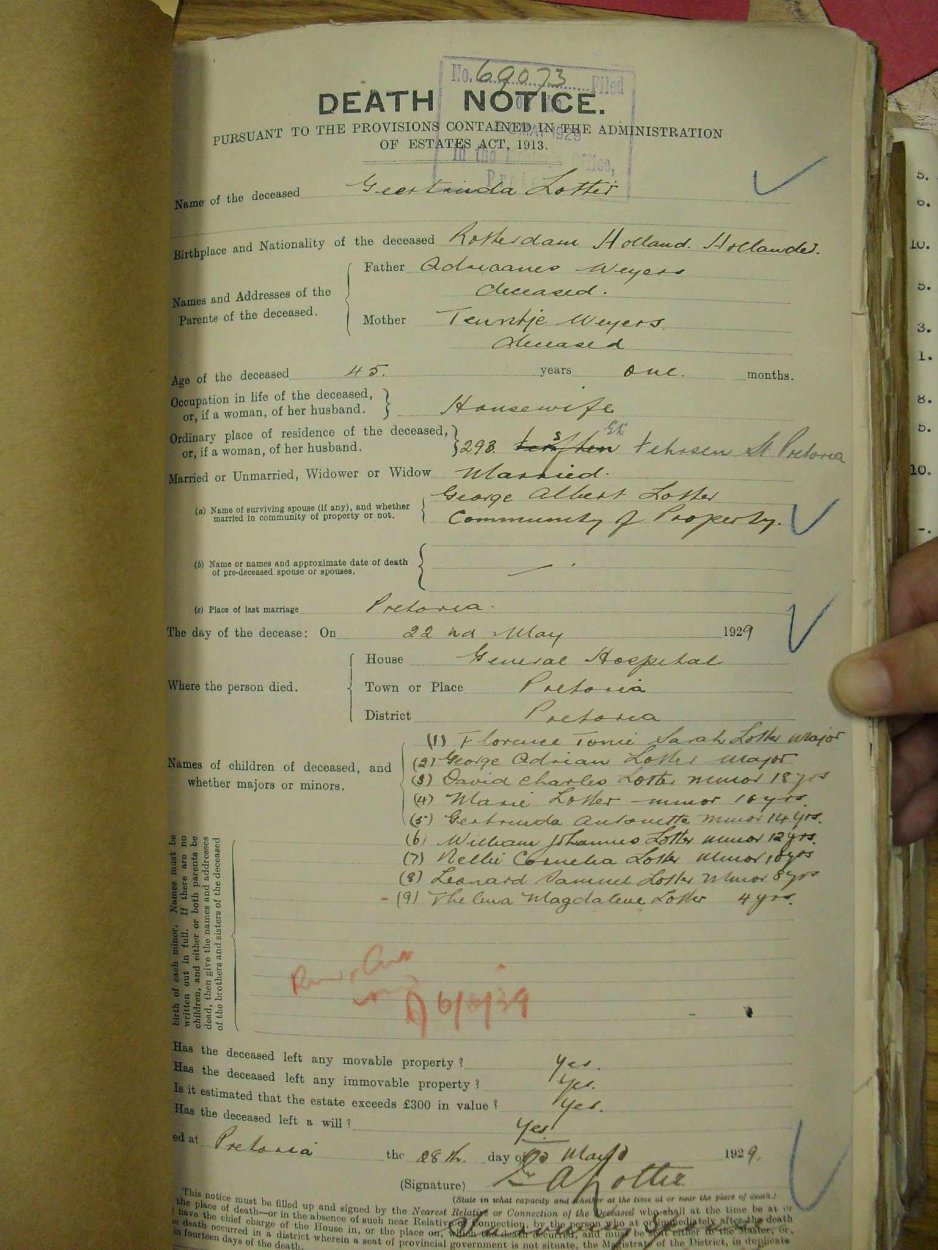 No. 69073 Filed
MAY 1929
In the Master's Office,
DEATH NOTICE.
PURSUANT TO THE PROVISIONS CONTAINED IN THE ADMINISTRATION
OF ESTATES ACT, 1913.
Name of the deceased Geertruida Lotter
Birthplace and Nationality of the deceased Rotterdam Holland. Hollander.
Names and Addresses of the Parents of the deceased.
Father Adriaanus Weyers
deceased.
Mother Teuntje Weyers.
deceased
Age of the deceased 45. years one. months.
Occupation in life of the deceased, or, if a woman, of her husband. Housewife
Ordinary place of residence of the deceased, or, if a woman, of her husband. 293 Fehrsen St Pretoria
Married or Unmarried, Widower or Widow Married.
(a) Name of surviving spouse (if any), and whether married in community of property or not. George Albert Lotter
Community of Property.
(b) Name or names and approximate date of death of pre-deceased spouse or spouses. —
(c) Place of last marriage Pretoria.
The day of the decease: On 22nd May 1929
Where the person died.
House General Hospital
Town or Place Pretoria
District Pretoria
Names of children of deceased, and whether majors or minors.
(1) Florence Tonie Sarah Lotter Major
(2) George Adrian Lotter Major
(3) David Charles Lotter minor 18 yrs
(4) Marie Lotter – minor 16 yrs.
(5) Gertruida Antonetta minor 14 yrs.
(6) William Johannes Lotter minor 12 yrs.
(7) Nellie Cornelia Lotter minor 10 yrs
(8) Leonard Samuel Lotter Minor 8 yrs
(9) Thelma Magdalene Lotter 4 yrs.
birth of each minor. Names must be
written out in full. If there are no
children, and either or both parents be
dead, then give the names and addresses
of the brothers and sisters of the deceased
6/6/29
Has the deceased left any movable property? Yes.
Has the deceased left any immovable property? Yes.
Is it estimated that the estate exceeds £300 in value? Yes.
Has the deceased left a will? Yes.
ed at Pretoria the 28th. day of May 1929.
(Signature) G A Lotter
(State in what capacity and whether at the time at or near the place of death.)
This notice must be filled up and signed by the Nearest Relative or Connection of the Deceased who shall at the time be at or
the place of death—or in the absence of such near Relative or Connection, by the person who at or immediately after the death
have the chief charge of the House in, or the place on, which the death occurred, and must be sent either to the Master, or,
death occurred in a district wherein a seat of provincial government is not situate, the Magistrate of the District, in duplicate
in fourteen days of the death.